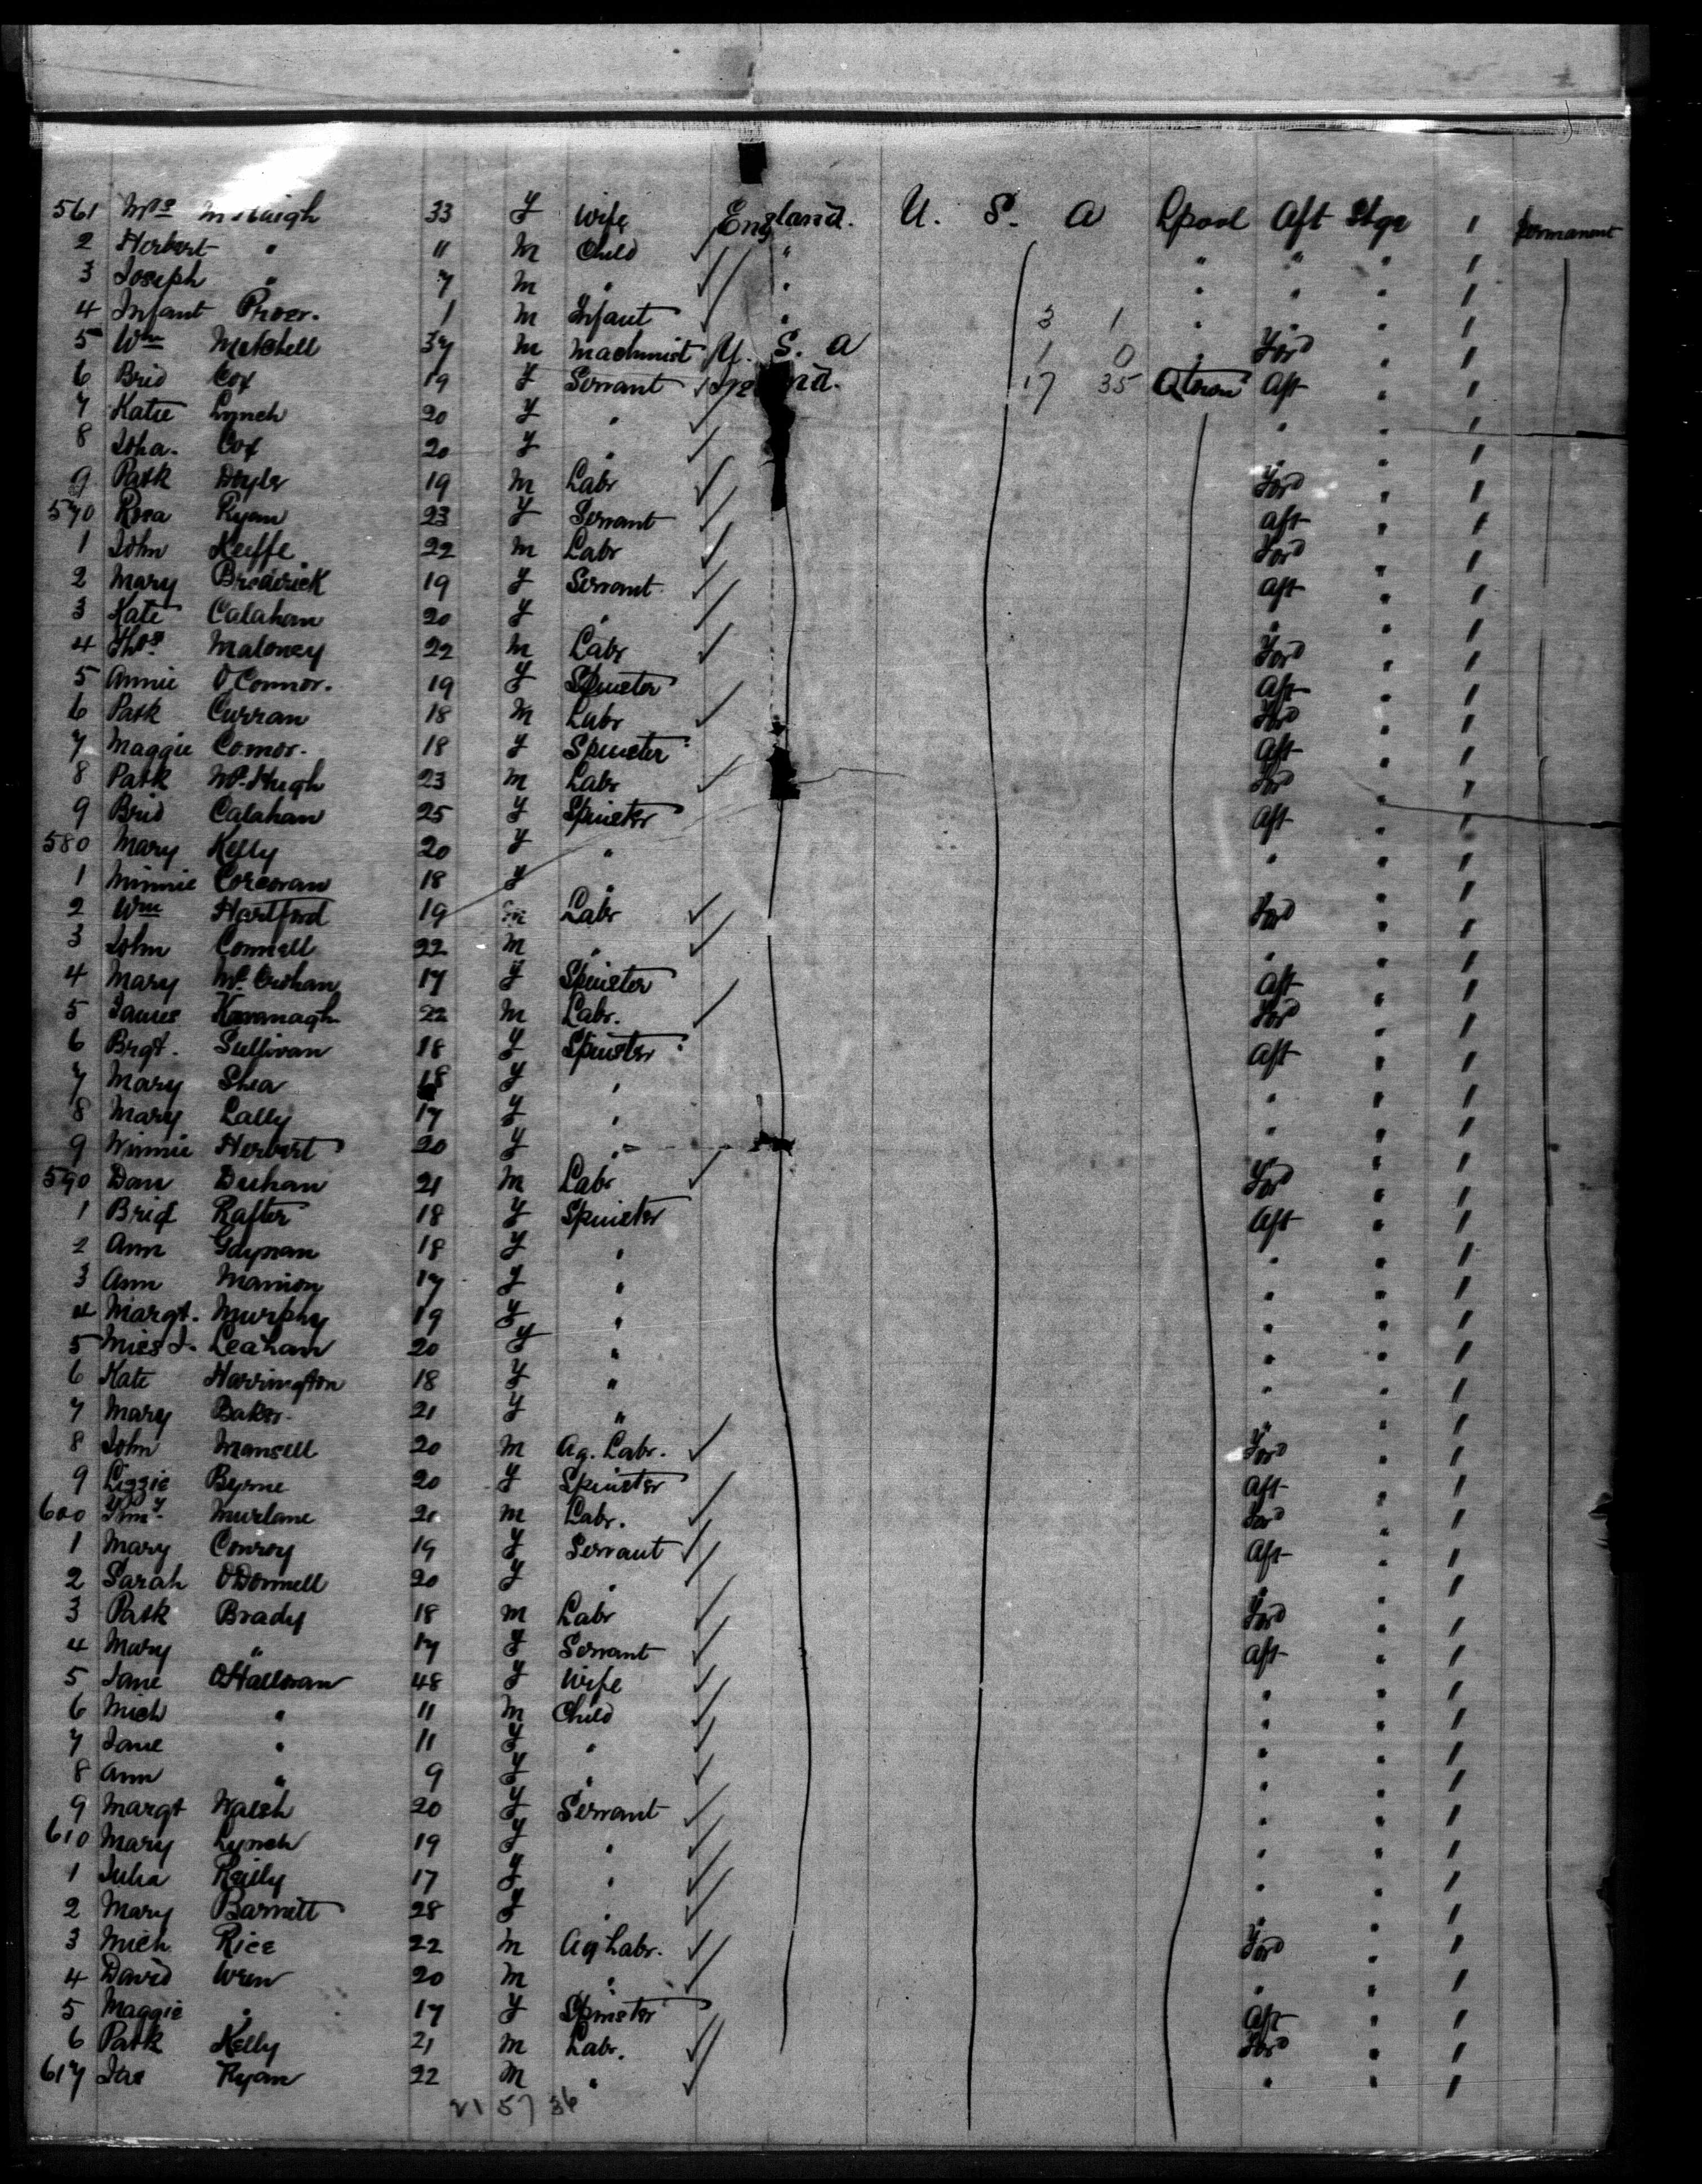 561 Mrs 33 F Wife England. U. S. A Lpool Aft Stge 1 permanent
2 Herbert " 11 M Child " " " " 1
3 Joseph " 7 M " " " " " 1
4 Infant 1 M Infant " 3 1 " " " 1
5 Wm Mitchell 37 M Machinist U. S. A 1 0 " Ford " 1
6 Brid Cox 19 F Servant 17 35 Qtown Aft " 1
7 Katie Lynch 20 F " " " 1
8 Joha. Cox 20 F " " " 1
9 Patk Doyle 19 M Labr Ford " 1
570 Rosa Ryan 23 F Servant Aft " 1
1 John Keiffe 22 M Labr Ford " 1
2 Mary Broderick 19 F Servant Aft " 1
3 Kate Calahan 20 F " " " 1
4 Thos. Maloney 22 M Labr Ford " 1
5 Annie O'Connor. 19 F Spinster Aft " 1
6 Patk Curran 18 M Labr Ford " 1
7 Maggie Connor. 18 F Spinster Aft " 1
8 Patk McHugh 23 M Labr Ford " 1
9 Brid Calahan 25 F Spinster Aft " 1
580 Mary Kelly 20 F " " " 1
1 Minnie Corcoran 18 F " " 1
2 Wm Hartford 19 M Labr Ford " 1
3 John Connell 22 M " " " 1
4 Mary 17 F Spinster Aft " 1
5 James Kavanagh 22 M Labr. Ford " 1
6 Brgt. Sullivan 18 F Spinster Aft " 1
7 Mary Shea 18 F " " " 1
8 Mary Lally 17 F " " " 1
9 Winnie Herbert 20 F " " 1
590 Dan 21 M Labr Ford " 1
1 Brid Rafter 18 F Spinster Aft " 1
2 Ann 18 F " " " 1
3 Ann Mannion 17 F " " " 1
4 Margt. Murphy 19 F " " " 1
5 Miss J. Leahan 20 F " " " 1
6 Kate Harrington 18 F " " " 1
7 Mary Baker 21 F " " " 1
8 John Mansell 20 M Ag. Labr. Ford " 1
9 Lizzie Byrne 20 F Spinster Aft " 1
600 Timy. 21 M Labr. Ford " 1
1 Mary Conroy 19 F Servant Aft " 1
2 Sarah O'Donnell 20 F " " " 1
3 Patk Brady 18 M Labr Ford " 1
4 Mary " 17 F Servant Aft " 1
5 Jane O'Halloran 48 F Wife " " 1
6 Mich " 11 M Child " " 1
7 Jane " 11 F " " " 1
8 Ann " 9 F " " " 1
9 Margt Walsh 20 F Servant " " 1
610 Mary Lynch 19 F " " " 1
1 Julia Reilly 17 F " " " 1
2 Mary Barnett 28 F " " " 1
3 Mich Rice 22 M Ag Labr. Ford " 1
4 David Wren 20 M " " " 1
5 Maggie " 17 F Spinster Aft " 1
6 Patk Kelly 21 M Labr. Ford " 1
617 Jas Ryan 22 M " " " 1
21 57 36